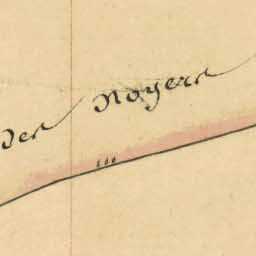 des Noyers